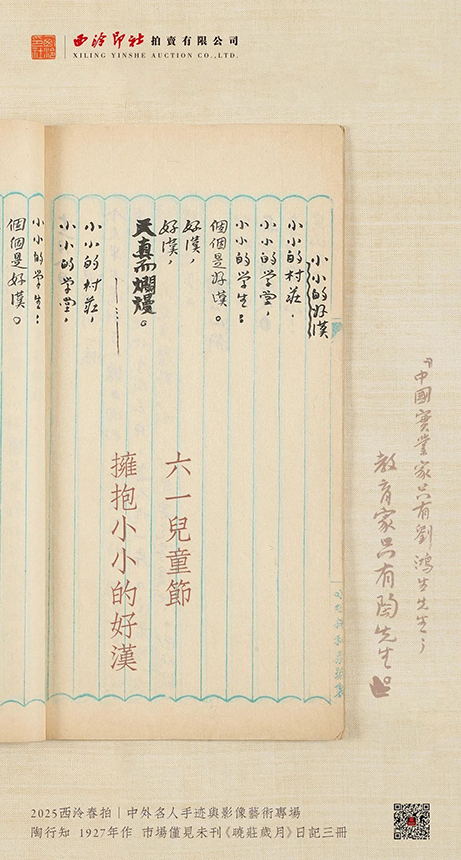 西泠印社 拍賣有限公司
XILING YINSHE AUCTION CO.,LTD.
小小的好漢
小小的村莊，
小小的学堂，
小小的学生；
個個是好漢。
好漢，
好漢，
天真而爛熳。
小小的村莊，
小小的学堂，
小小的学生；
個個是好漢。
六一兒童節
擁抱小小的好漢
『中國實業家只有劉鴻生先生；
教育家只有陶先生。』
2025西泠春拍｜中外名人手迹與影像藝術專場
陶行知 1927年作 市場僅見未刊《曉莊歲月》日記三冊